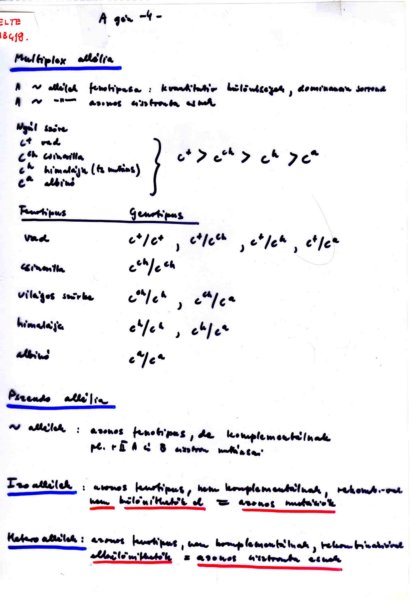 ELTE
A gén -4-
Multiplex allélia
A ~ allélek fenotipusa : kvantitativ különbségek, dominancia sorrend
A ~ -"- azonos cisztronba esnek
Nyúl szőre
c+ vad
c^ch csincsilla
c^h himalája (ts mutáns)
c^a albinó
c+ > c^ch > c^h > c^a
Fenotipus Genotipus
vad c+/c+ , c+/c^ch , c+/c^h , c+/c^a
csincsilla c^ch/c^ch
világos szürke c^ch/c^h , c^ch/c^a
himalája c^h/c^h , c^h/c^a
albinó c^a/c^a
Pszeudo allélia
~ allélek : azonos fenotipus, de komplementálnak
pl. r II A és B cisztron mutánsai
Izoallélek : azonos fenotipus, nem komplementálnak,
nem különíthetők el = azonos mutációk
Heteroallélek : azonos fenotipus, nem komplementálnak, rekombinációval
elkülöníthetők = azonos cisztronba esnek